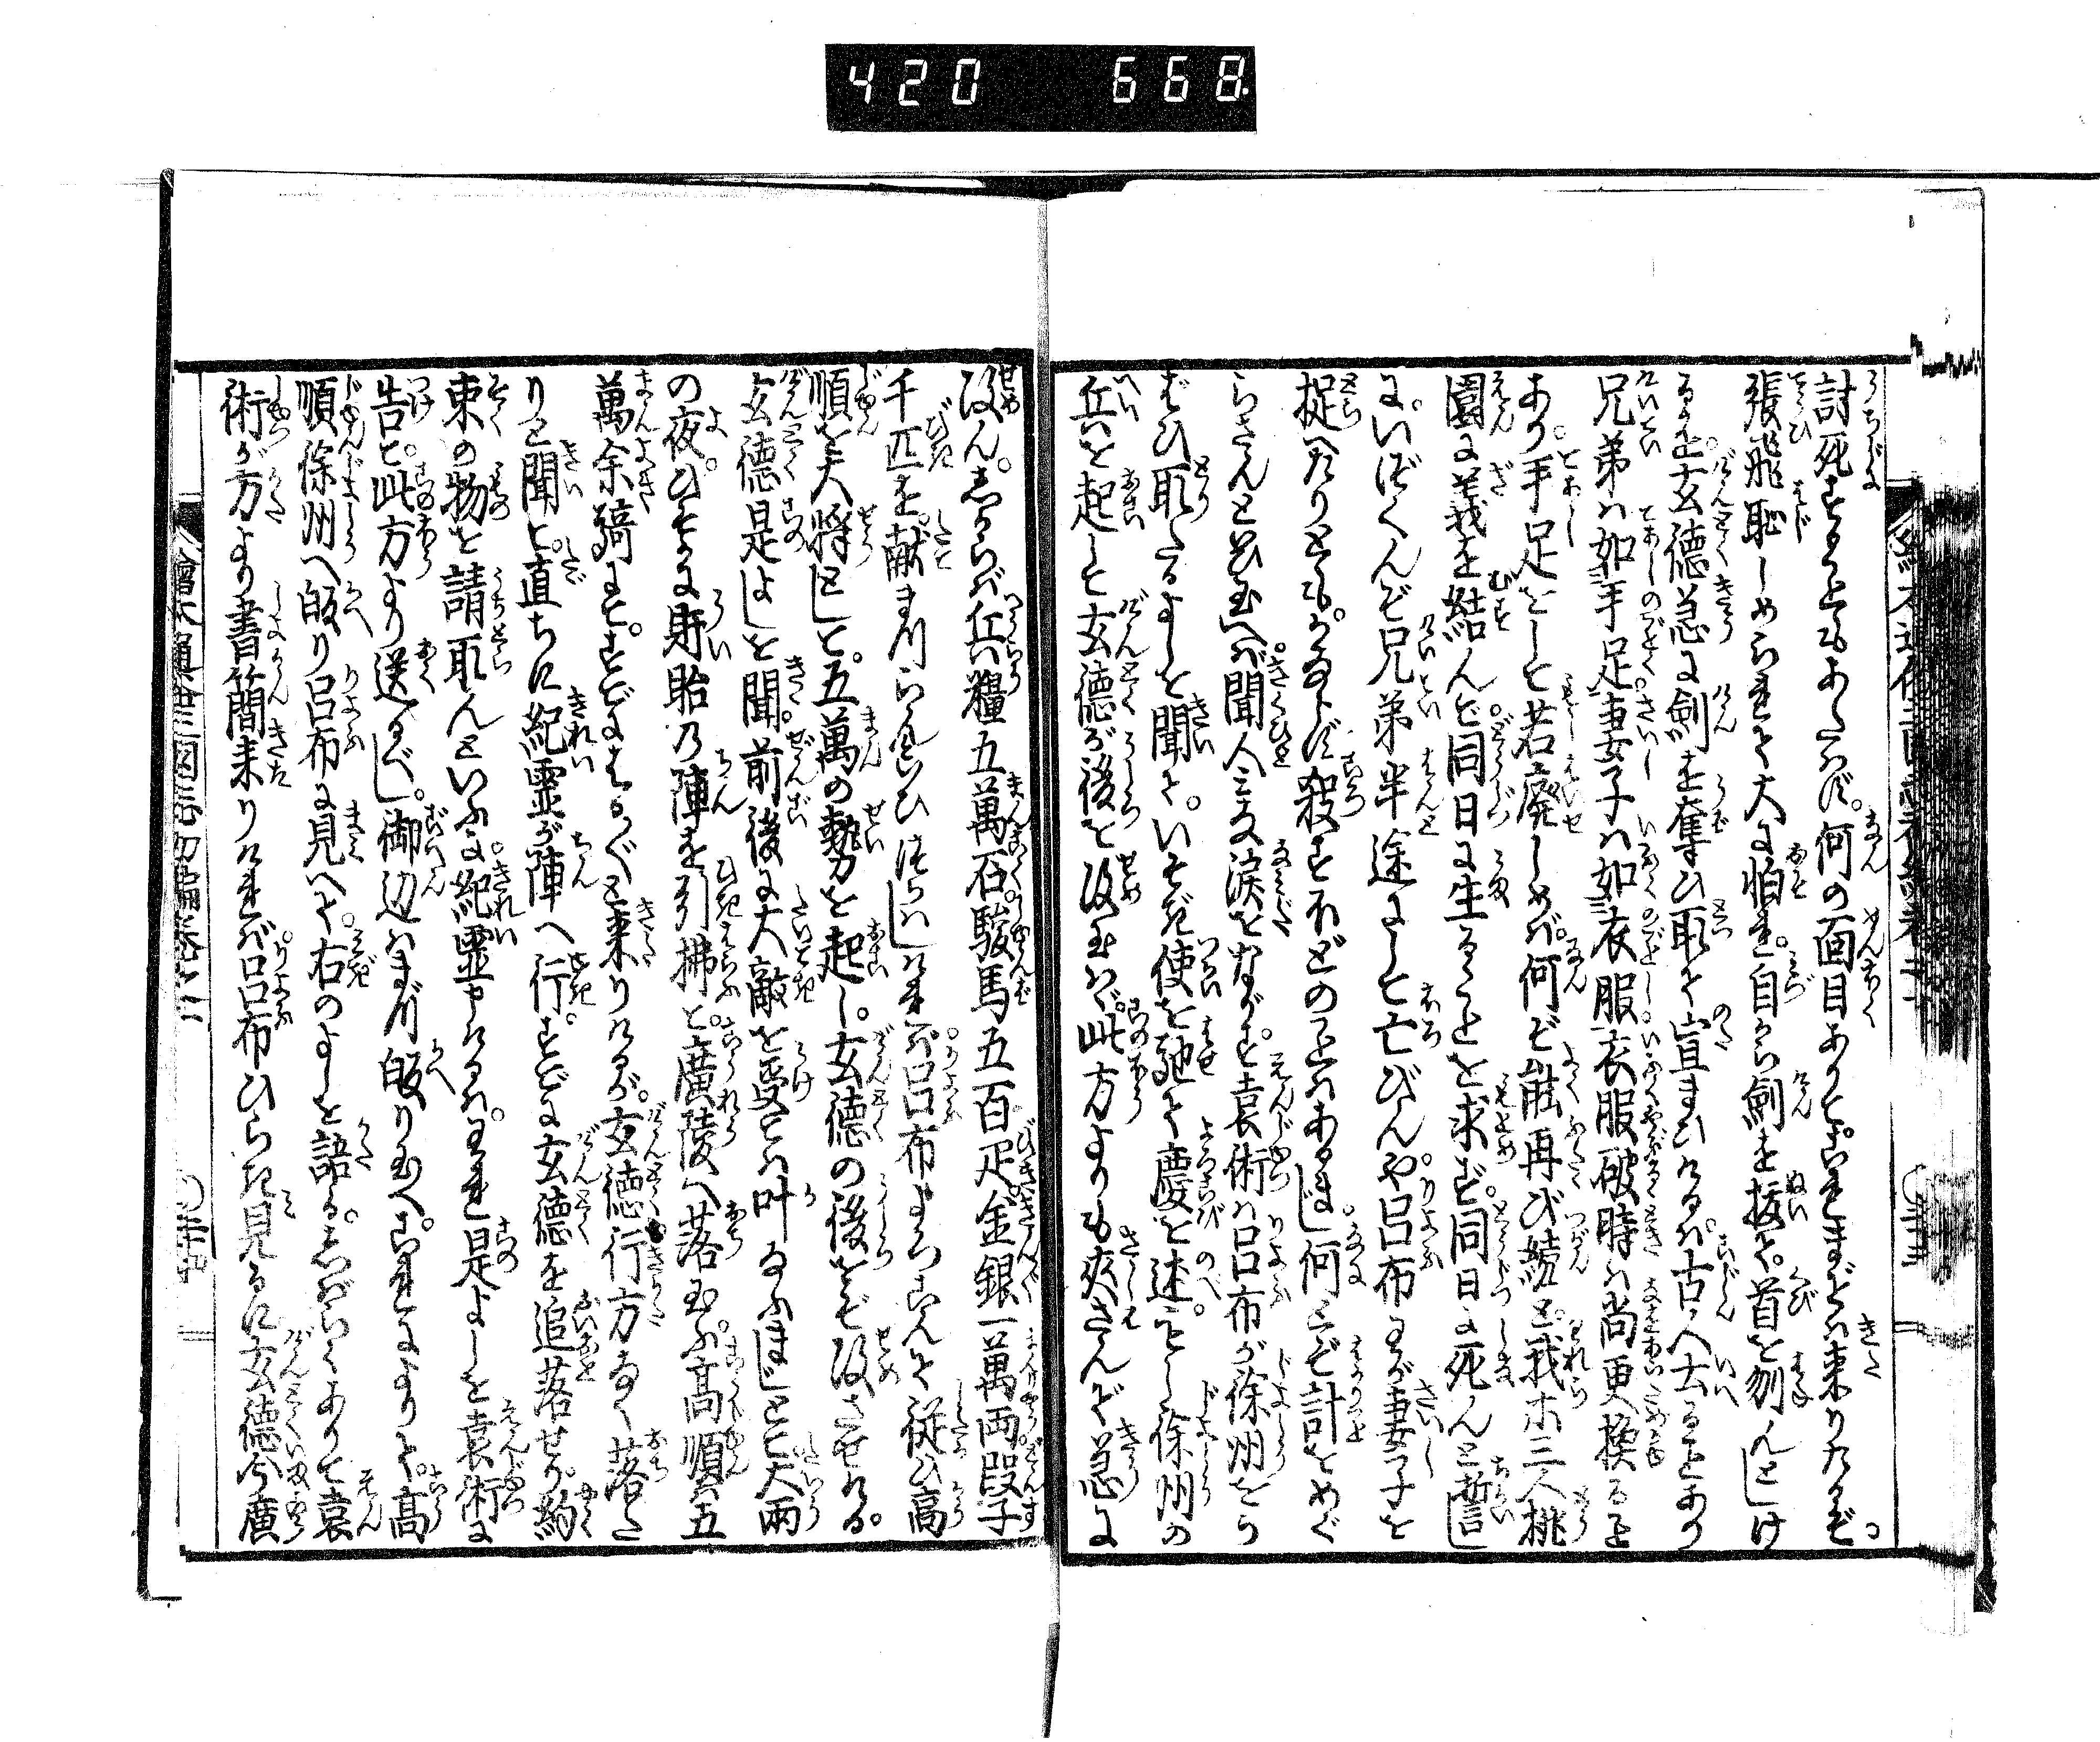 420 668.
討死するともあたはず。何の面目ありてこれまでは来りたるぞ
張飛恥しめられて大に怕れ。自ら剣を抜て。首を刎んとしけ
るを。玄徳急に剣を奪ひ取て宣まひけるは。古人いへることあり
兄弟は如手足。妻子は如衣服。衣服破時は尚更換るを
あり。手足をして若廃しめば。何ぞ能再び続と。我ホ三人桃
園に義を結んで。同日に生ることを求ず。同日に死んと誓し
に。いづくんぞ兄弟半途にして亡びんや。呂布わが妻子を
捉へたりとも。かならず殺すほどのことはあるまじ。何とぞ計をめぐ
らさんと宣玉へば。聞人みな涙をながす。袁術は呂布が徐州をう
ばひ取たるよしを聞て。いそぎ使を馳て慶を述べし。徐州の
兵を起して玄徳が後を攻玉はゞ。此方よりも夾さんで急に
攻ん。しからば兵糧五萬石。駿馬五百疋。金銀一萬両。段子
千匹を献まつらんといひつかはしければ。呂布よろこんで従ひ。高
順を大将として。五萬の勢を起し。玄徳の後をぞ攻させける。
玄徳是よしを聞。前後に大敵を受ては叶なふまじとて。大雨
の夜。ひそかに盱眙の陣を引拂て。廣陵へ落玉ふ。高順五
萬余騎にて。すでにちかぐと来りけるが。玄徳行方なく落た
りと聞て。直ちに紀霊が陣へ行。すでに玄徳を追落せり。約
束の物を請取んといふに。紀霊申けるは。われ是よしを袁術に
告て。此方より送るべし。御辺はまづ皈り玉へ。これによりて。高
順徐州へ皈り。呂布に見へて。右のよしを語る。しばらくありて袁
術が方より書簡来りければ。呂布ひらき見るに。玄徳今廣
繪本通俗三國志初編巻之二